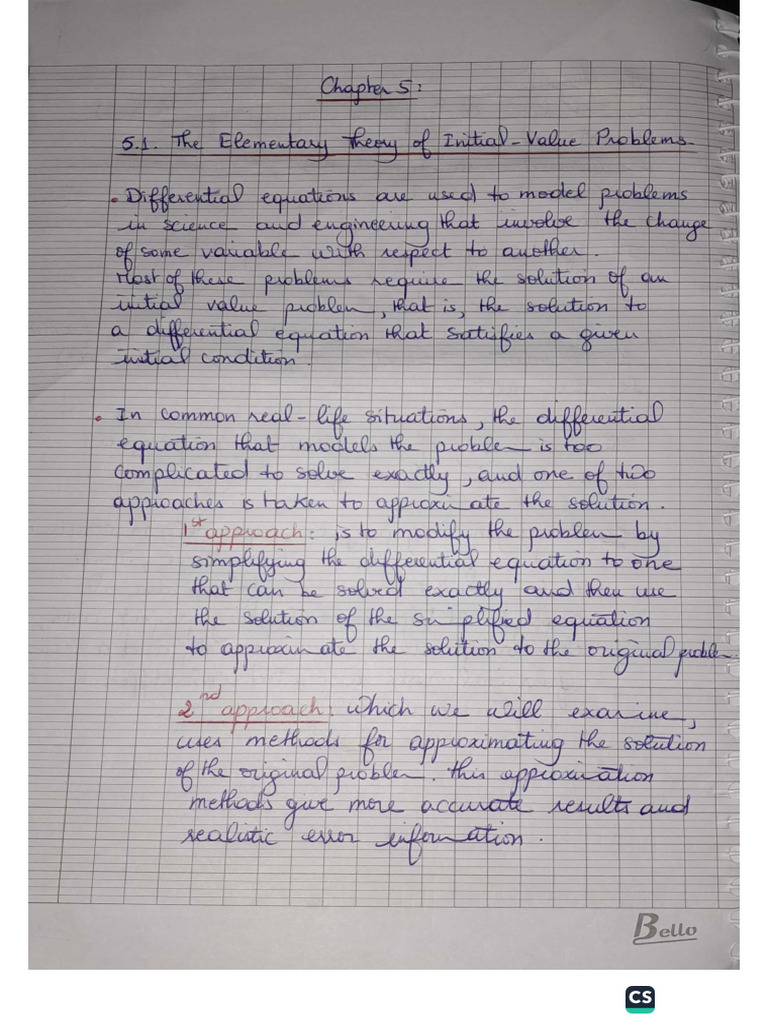 Chapter 5:
5.1. The Elementary Theory of Initial-Value Problems.
• Differential equations are used to model problems
in science and engineering that involve the change
of some variable with respect to another.
Most of these problems require the solution of an
initial value problem, that is, the solution to
a differential equation that satisfies a given
initial condition.
• In common real-life situations, the differential
equation that models the problem is too
complicated to solve exactly, and one of two
approaches is taken to approximate the solution.
1st approach: is to modify the problem by
simplifying the differential equation to one
that can be solved exactly and then use
the solution of the simplified equation
to approximate the solution to the original problem
2nd approach: which we will examine,
uses methods for approximating the solution
of the original problem. this approximation
methods give more accurate results and
realistic error information.
Bello
CS